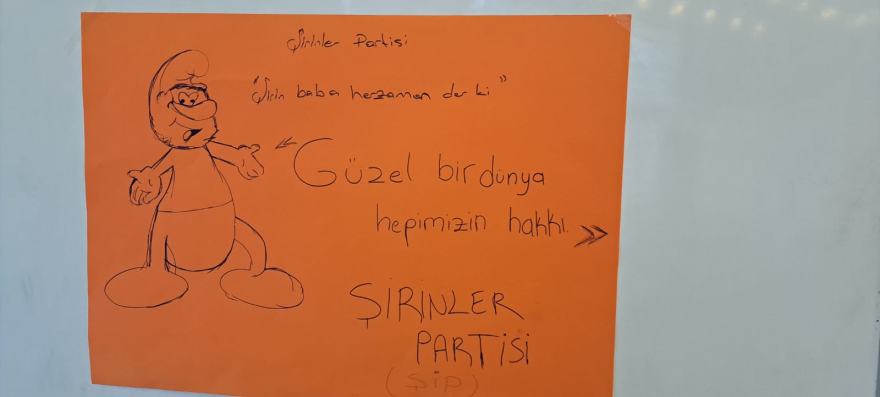 Şirinler Partisi
"Şirin baba herzaman der ki"
Güzel bir dünya
hepimizin hakkı.
ŞİRİNLER
PARTİSİ
(ŞİP)